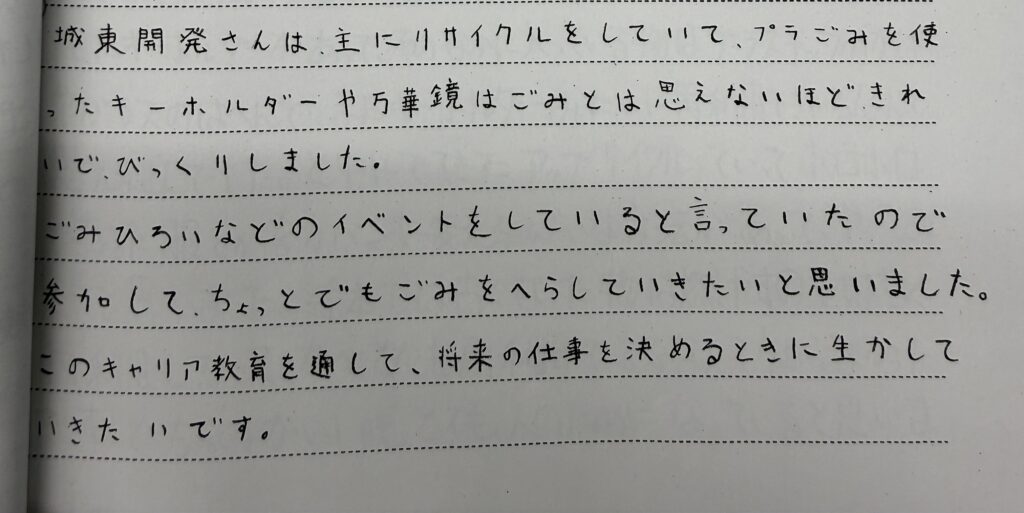 城東開発さんは、主にリサイクルをしていて、プラごみを使
ったキーホルダーや万華鏡はごみとは思えないほどきれ
いで、びっくりしました。
ごみひろいなどのイベントをしていると言っていたので
参加して、ちょっとでもごみをへらしていきたいと思いました。
このキャリア教育を通して、将来の仕事を決めるときに生かして
いきたいです。